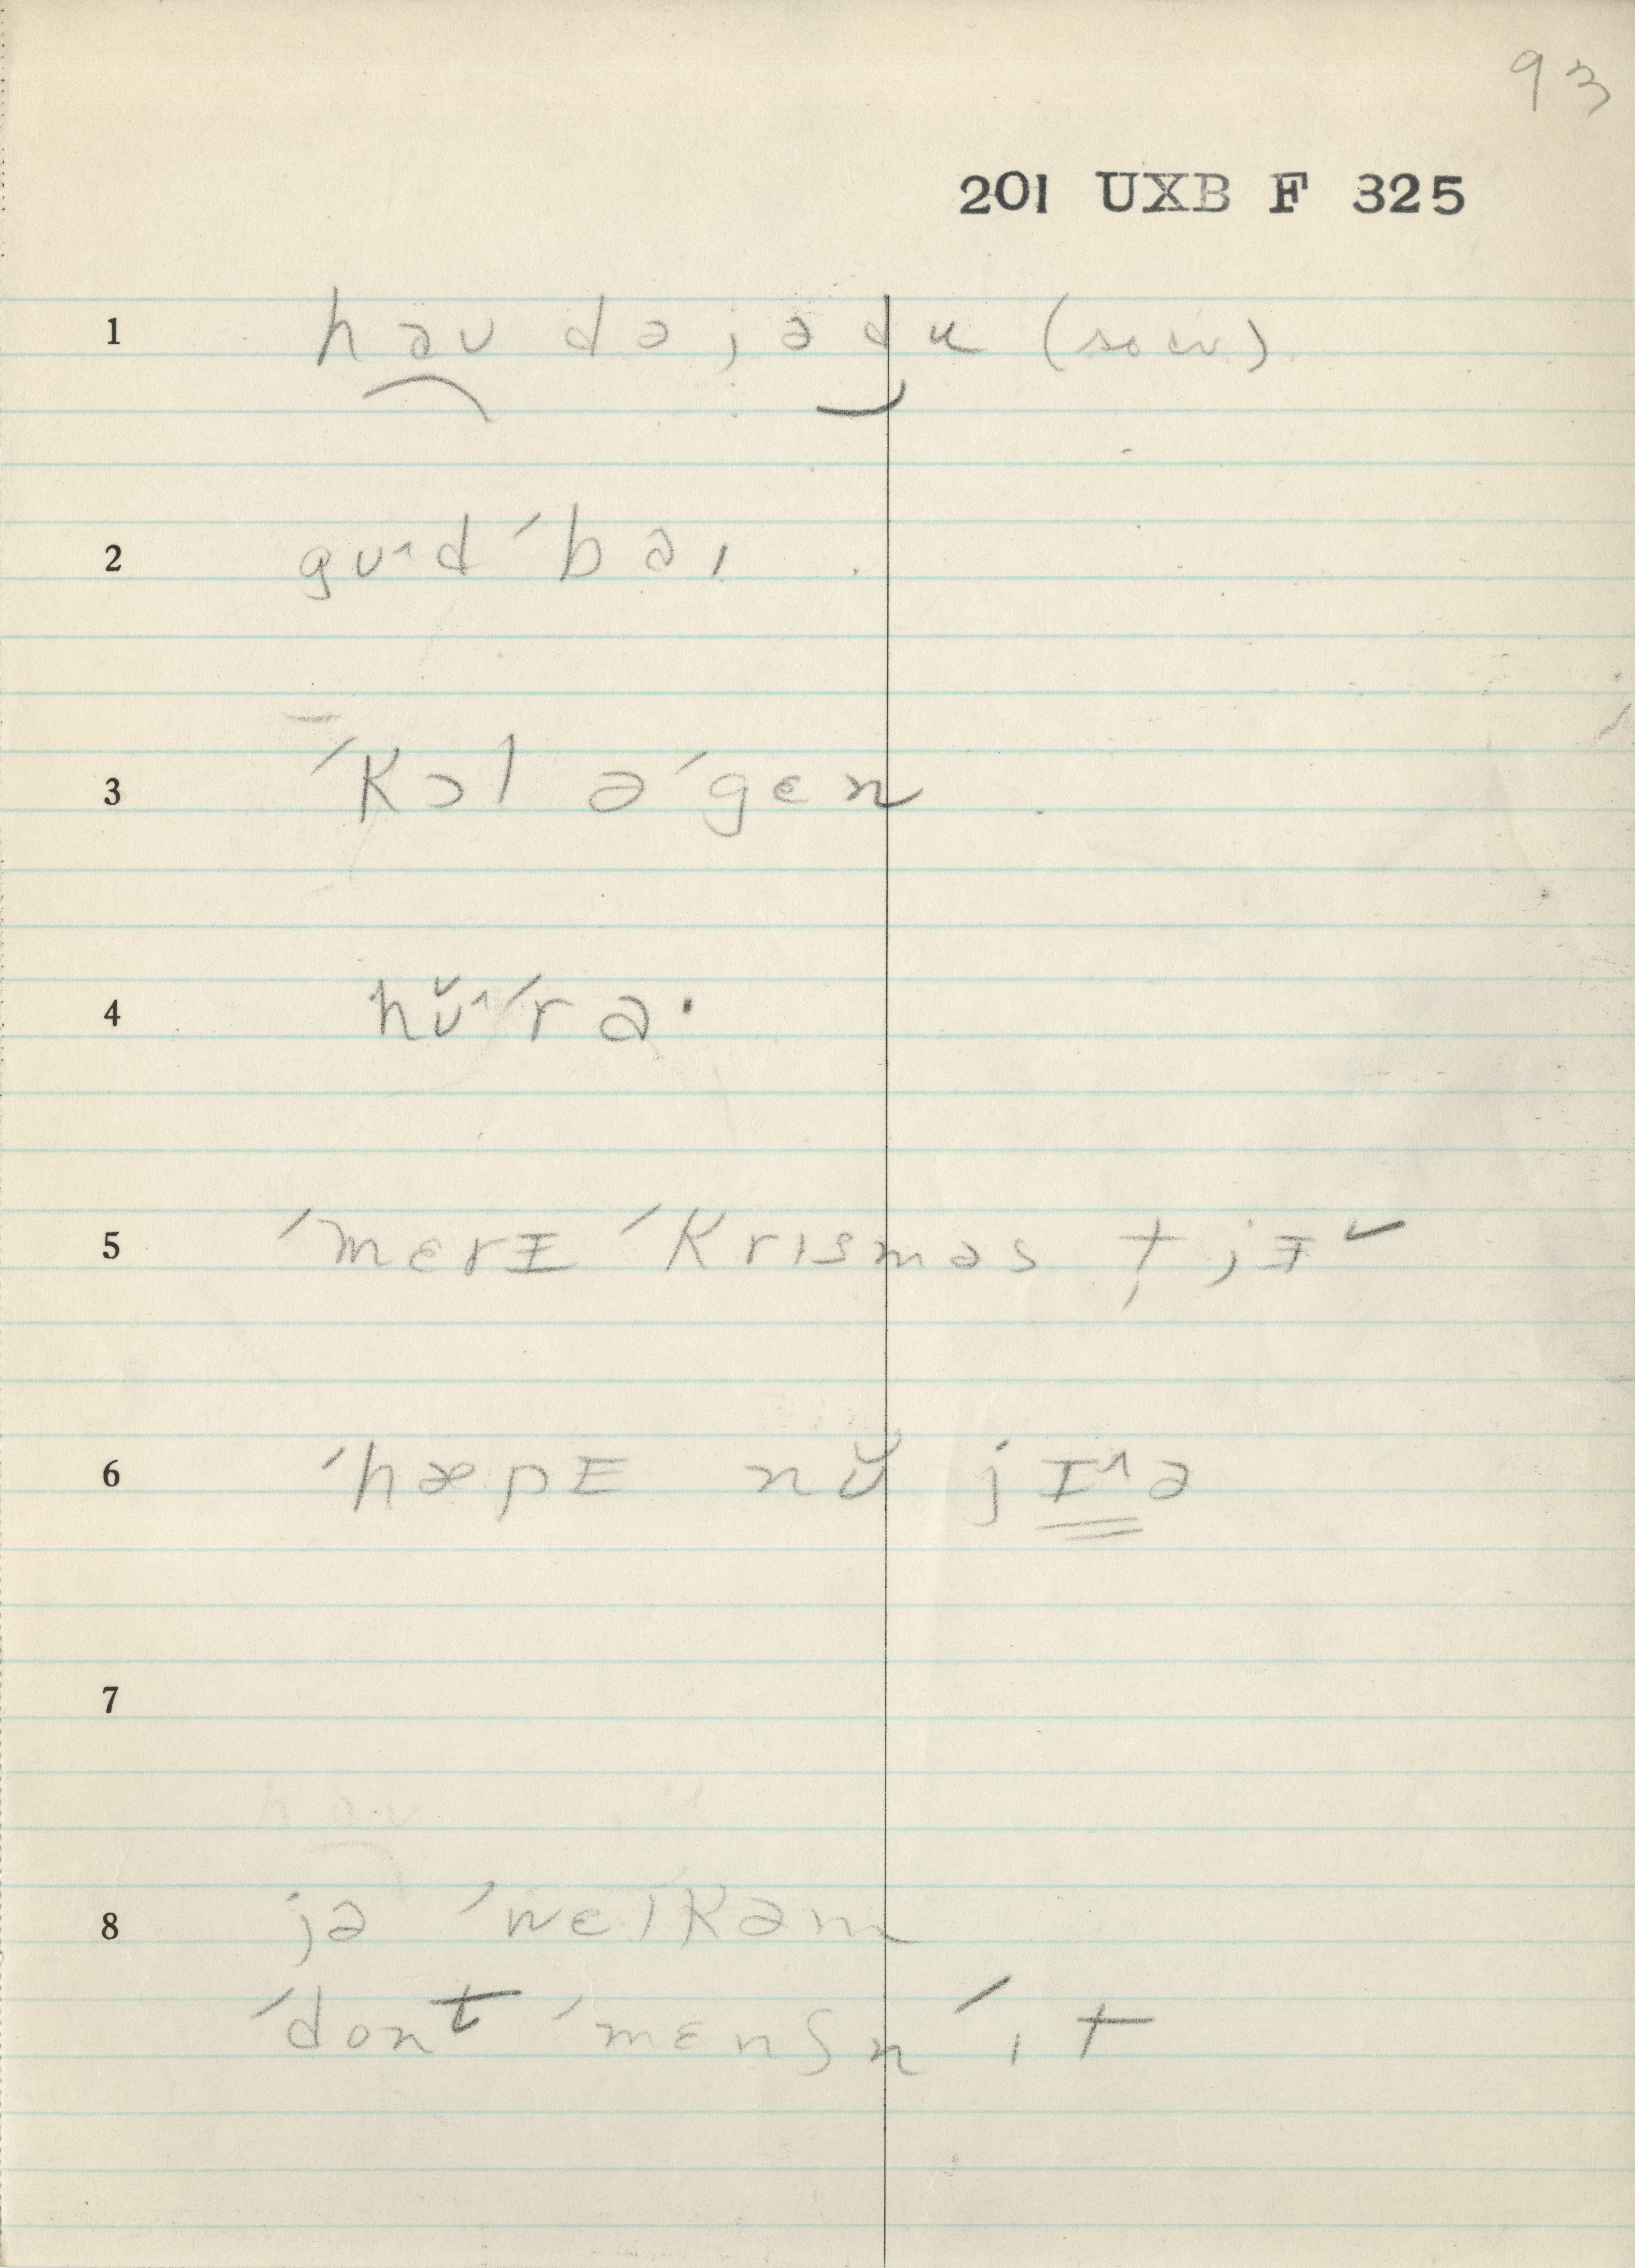 93
201 UXB F 325
1 həu də jə du
2 gʊ^d ´bəı
3 ´kɔl ə´gen
4 hʊ̆^´ra·
5 ´merɪ ´krısməs t̡ jɪ˅
6 ´hæpɪ nʊ̆ jɪ^ə
7
8 jə ´welkəm
´dont ´menʃn ´ıt